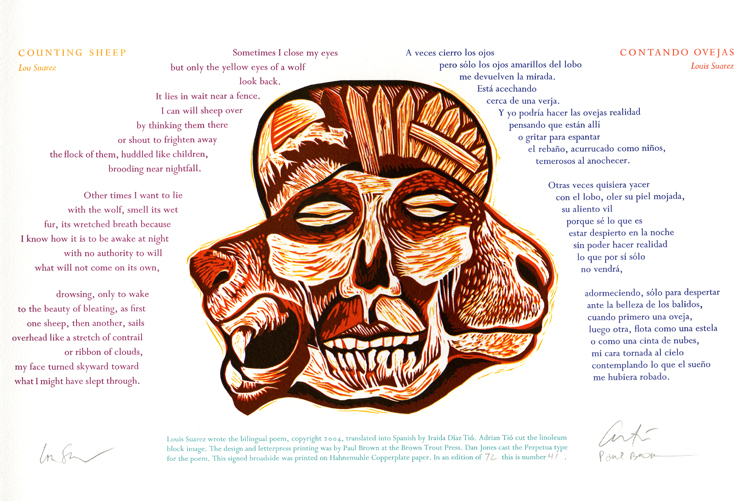 COUNTING SHEEP
Lou Suarez
Sometimes I close my eyes
but only the yellow eyes of a wolf
look back.
It lies in wait near a fence.
I can will sheep over
by thinking them there
or shout to frighten away
the flock of them, huddled like children,
brooding near nightfall.
Other times I want to lie
with the wolf, smell its wet
fur, its wretched breath because
I know how it is to be awake at night
with no authority to will
what will not come on its own,
drowsing, only to wake
to the beauty of bleating, as first
one sheep, then another, sails
overhead like a stretch of contrail
or ribbon of clouds,
my face turned skyward toward
what I might have slept through.
CONTANDO OVEJAS
Louis Suarez
A veces cierro los ojos
pero sólo los ojos amarillos del lobo
me devuelven la mirada.
Está acechando
cerca de una verja.
Y yo podría hacer las ovejas realidad
pensando que están allí
o gritar para espantar
el rebaño, acurrucado como niños,
temerosos al anochecer.
Otras veces quisiera yacer
con el lobo, oler su piel mojada,
su aliento vil
porque sé lo que es
estar despierto en la noche
sin poder hacer realidad
lo que por sí sólo
no vendrá,
adormeciendo, sólo para despertar
ante la belleza de los balidos,
cuando primero una oveja,
luego otra, flota como una estela
o como una cinta de nubes,
mi cara tornada al cielo
contemplando lo que el sueño
me hubiera robado.
Louis Suarez wrote the bilingual poem, copyright 2004, translated into Spanish by Iraida Díaz Tió. Adrian Tió cut the linoleum
block image. The design and letterpress printing was by Paul Brown at the Brown Trout Press. Dan Jones cast the Perpetua type
for the poem. This signed broadside was printed on Hahnemuhle Copperplate paper. In an edition of 72 this is number 41.